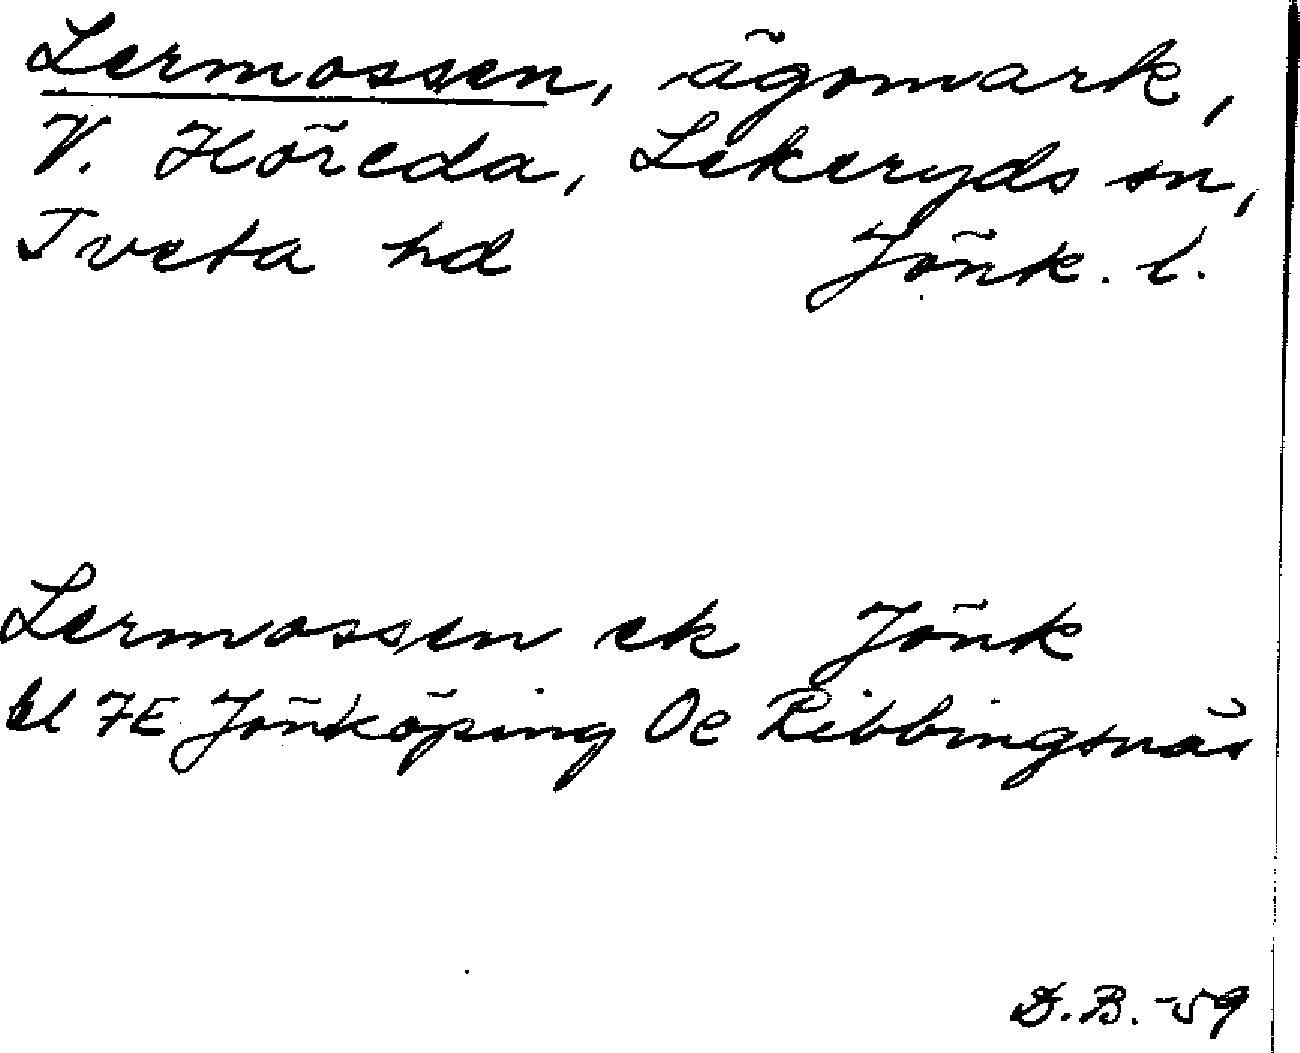 Lermossen, ägomark,
V. Höreda, Lekeryds sn,
Tveta hd Jönk. l.
Lermossen ek Jönk
bl 7E Jönköping Oe Ribbingsnäs
D.B. -59